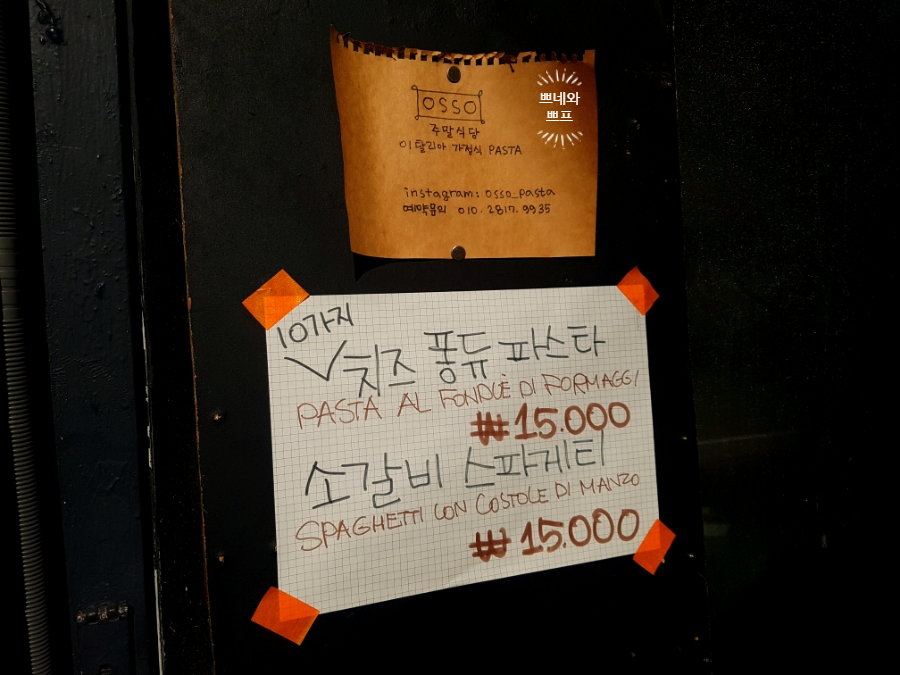 OSSO
주말식당
이탈리아 가정식 PASTA
instagram: osso_pasta
예약문의 010. 2817. 9935
쁘네와
쁘프
10가지
치즈 퐁듀 파스타
PASTA AL FONDUE DI FORMAGGI
₩15.000
소갈비 스파게티
SPAGHETTI CON COSTOLE DI MANZO
₩15.000